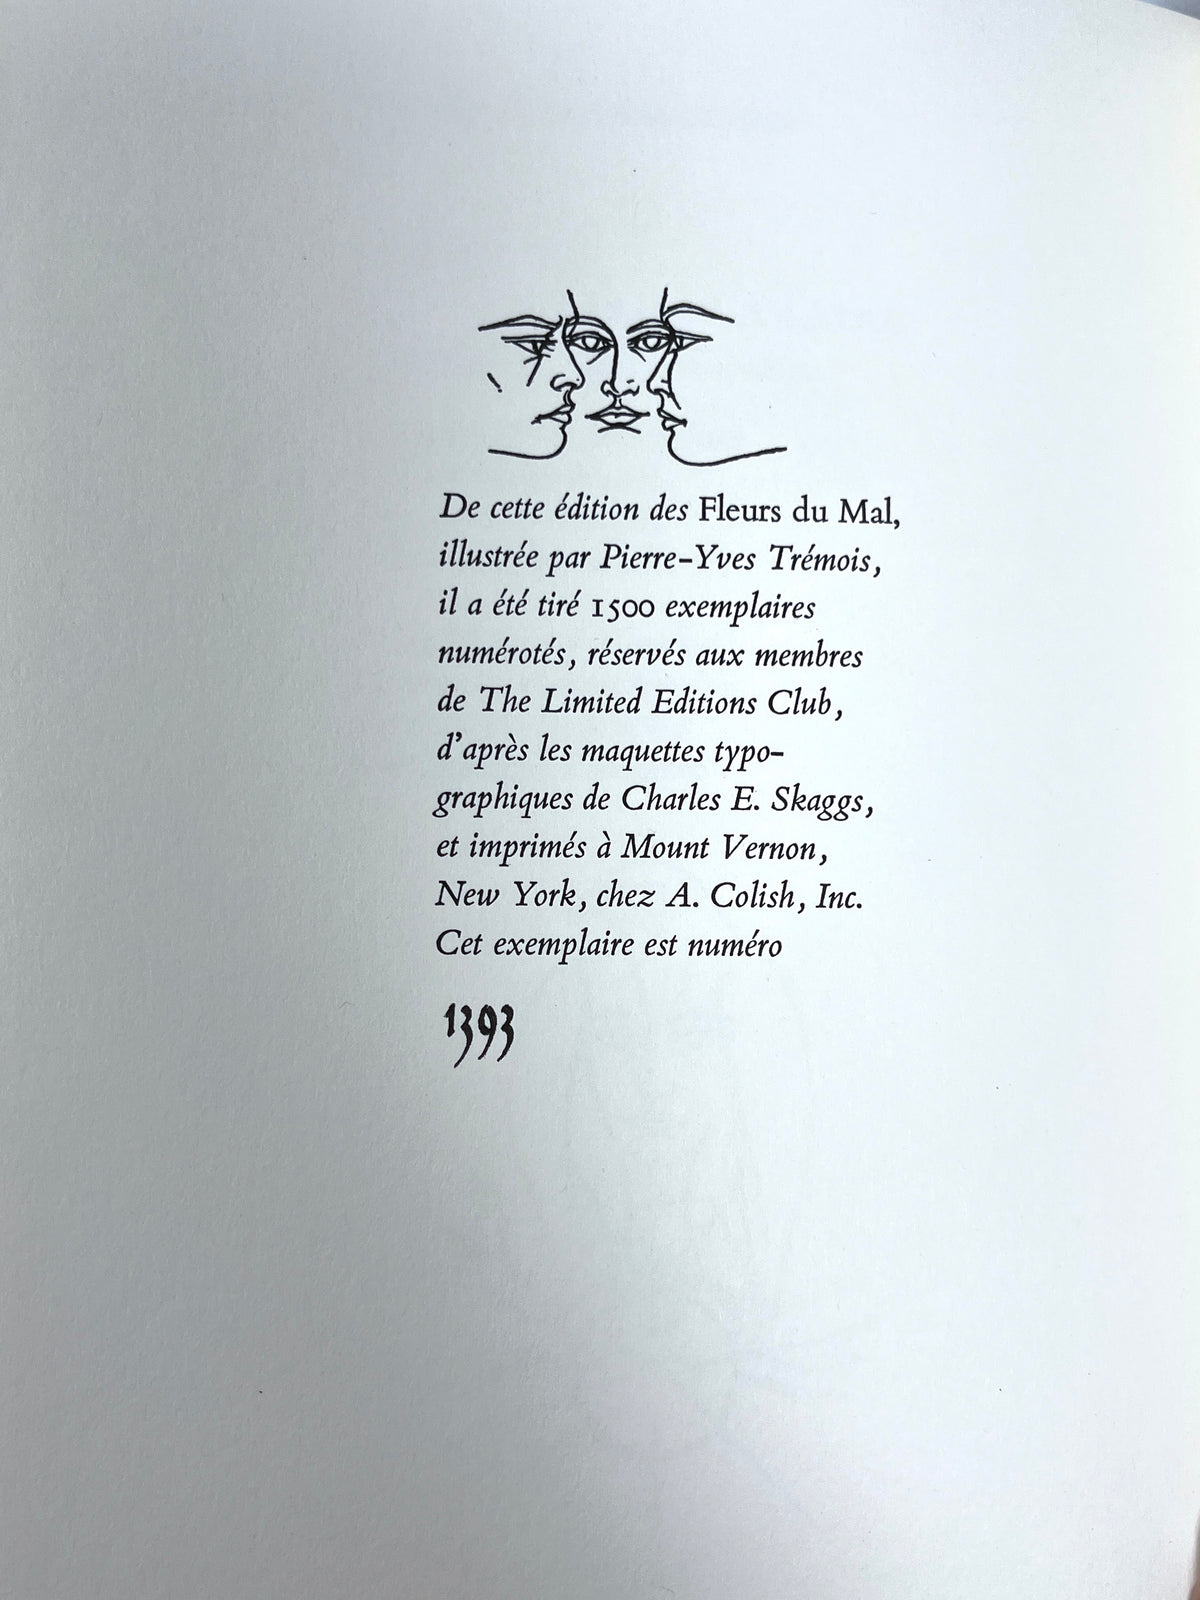 De cette édition des Fleurs du Mal,
illustrée par Pierre-Yves Trémois,
il a été tiré 1500 exemplaires
numérotés, réservés aux membres
de The Limited Editions Club,
d'après les maquettes typo-
graphiques de Charles E. Skaggs,
et imprimés à Mount Vernon,
New York, chez A. Colish, Inc.
Cet exemplaire est numéro
1393